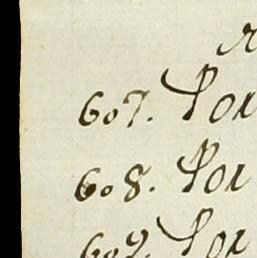 607. Por
608. Por
609. Por